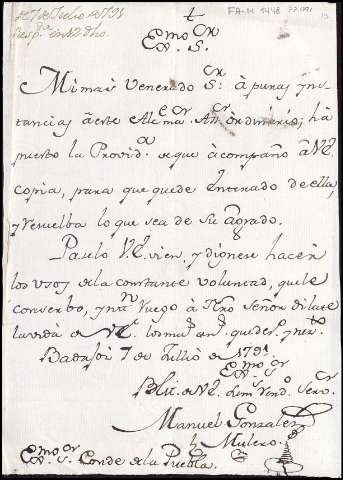 de 7 de Julio de 1791
Resp.ᵈᵃ en 12 dho.
FA-M 1448
+
Exmo. Sor.
Mi mas Venerado Sor: à puras yns-
tancias à este Alc.e ma.or An.r ordinario; hà
puesto la Provid.a de que acompaño à VE.
copia, para que quede Enterado de ella,
y resuelba lo que sea de su Agrado.
Paselo VE. vien, y dignese hacer
los usos de la constante voluntad, que le
conserbo, ynn Ruego à Ntro Señor dilate
la vida de VE. los mu.s an.s que des.o y nec.to
Badajoz 7 de Jullio de 1791.
Exmo. Sor.
Blm. de VE. Su mas Vend.o Servor
Manuel Gonzalez
y Mulero
Exmo. Sor. Conde de la Puebla.